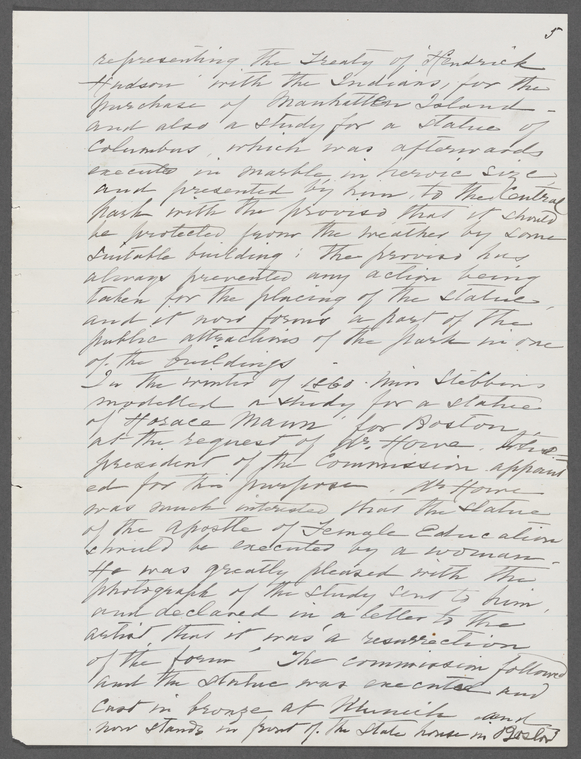 5
representing the Treaty of 'Hendrick
Hudson' with the Indians, for the
purchase of Manhatten Island -
and also a study for a statue of
Columbus, which was afterwards
executed in marble in heroic size
and presented by him, to the Central
Park with the proviso that it should
be protected from the weather by some
suitable building; the proviso has
always prevented any action being
taken for the placing of the statue,
and it now forms a part of the
public attractions of the park in one
of the buildings -
In the winter of 1860. Miss Stebbins
modelled a study for a statue
of 'Horace Mann', for Boston,
at the request of Dr. Howe.
president of the Commission appoint
ed for this purpose. Dr Howe
was much interested that the statue
of the Apostle of Female Education
should be executed by a woman -
He was greatly pleased with the
photograph of the study sent to him,
and declared in a letter to the
artist that it was 'a resurrection
of the form' The commission followed
and the statue was executed and
cast in bronze at Munich and
now stands in front of the State house in Boston